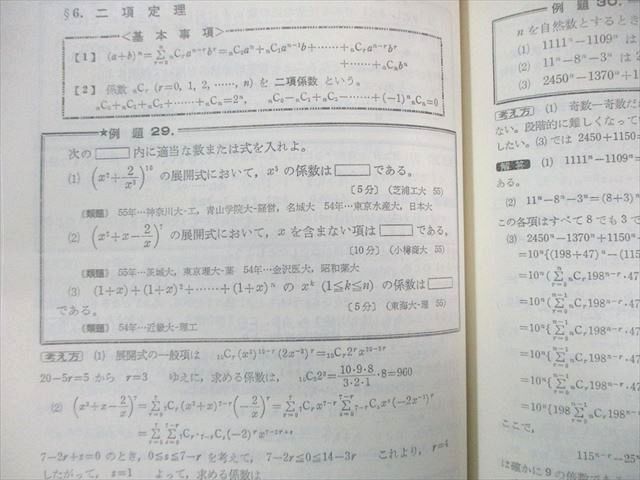 §6. 二項定理
<基本事項>
【1】 (a+b)ⁿ=Σ ₙCᵣaⁿ⁻ʳbʳ=ₙC₀aⁿ+ₙC₁aⁿ⁻¹b+……+ₙCᵣaⁿ⁻ʳbʳ
+……+ₙCₙbⁿ
【2】 係数 ₙCᵣ (r=0, 1, 2, ……, n) を 二項係数 という。
ₙC₀+ₙC₁+ₙC₂+……+ₙCₙ=2ⁿ, ₙC₀−ₙC₁+ₙC₂−……+(−1)ⁿₙCₙ=0
★例題 29.
次の 内に適当な数または式を入れよ。
(1) (x²+2/x³)¹⁰ の展開式において, x⁵ の係数は である。
〔5分〕 (芝浦工大 55)
(類題) 55年…神奈川大-工, 青山学院大-経営, 名城大 54年…東京水産大, 日本大
(2) (x²+x−2/x)⁷ の展開式において, x を含まない項は である。
〔10分〕 (小樽商大 55)
(類題) 55年…茨城大, 東京理大-薬 54年…金沢医大, 昭和薬大
(3) (1+x)+(1+x)²+……+(1+x)ⁿ の xᵏ (1≦k≦n) の係数は
である。
〔5分〕 (東海大-理 55)
(類題) 54年…近畿大-理工
考え方 (1) 展開式の一般項は ₁₀Cᵣ(x²)¹⁰⁻ʳ(2x⁻³)ʳ=₁₀Cᵣ2ʳx²⁰⁻⁵ʳ
20−5r=5 から r=3 ゆえに, 求める係数は, ₁₀C₃2³=10·9·8/3·2·1·8=960
(2) (x²+x−2/x)⁷=Σ ₇Cᵣ(x²+x)⁷⁻ʳ(−2/x)ʳ
7−2r+s=0 のとき, 0≦s≦7−r を考えて, 7−2r≦0≦14−3r これより, r=4
したがって, s=1 よって, 求める係数は
例題 30.
n を自然数とするとき
(1) 1111ⁿ−1109ⁿ は
(2) 11ⁿ−8ⁿ−3ⁿ は 2
(3) 2450ⁿ−1370ⁿ+1
考え方 (1) 奇数−奇数だ
ない。段階的に難しくなって
したい。(3) では 2450+1150=
解答 (1) 1111ⁿ−1109ⁿ=
ある。
(2) 11ⁿ−8ⁿ−3ⁿ=(8+3)ⁿ
この各項はすべて 8 でも 3 で
(3) 2450ⁿ−1370ⁿ+1150ⁿ
=10ⁿ{(198+47)ⁿ−(115
ここで,
115ⁿ⁻¹−25ⁿ
は確かに 9 の倍数である